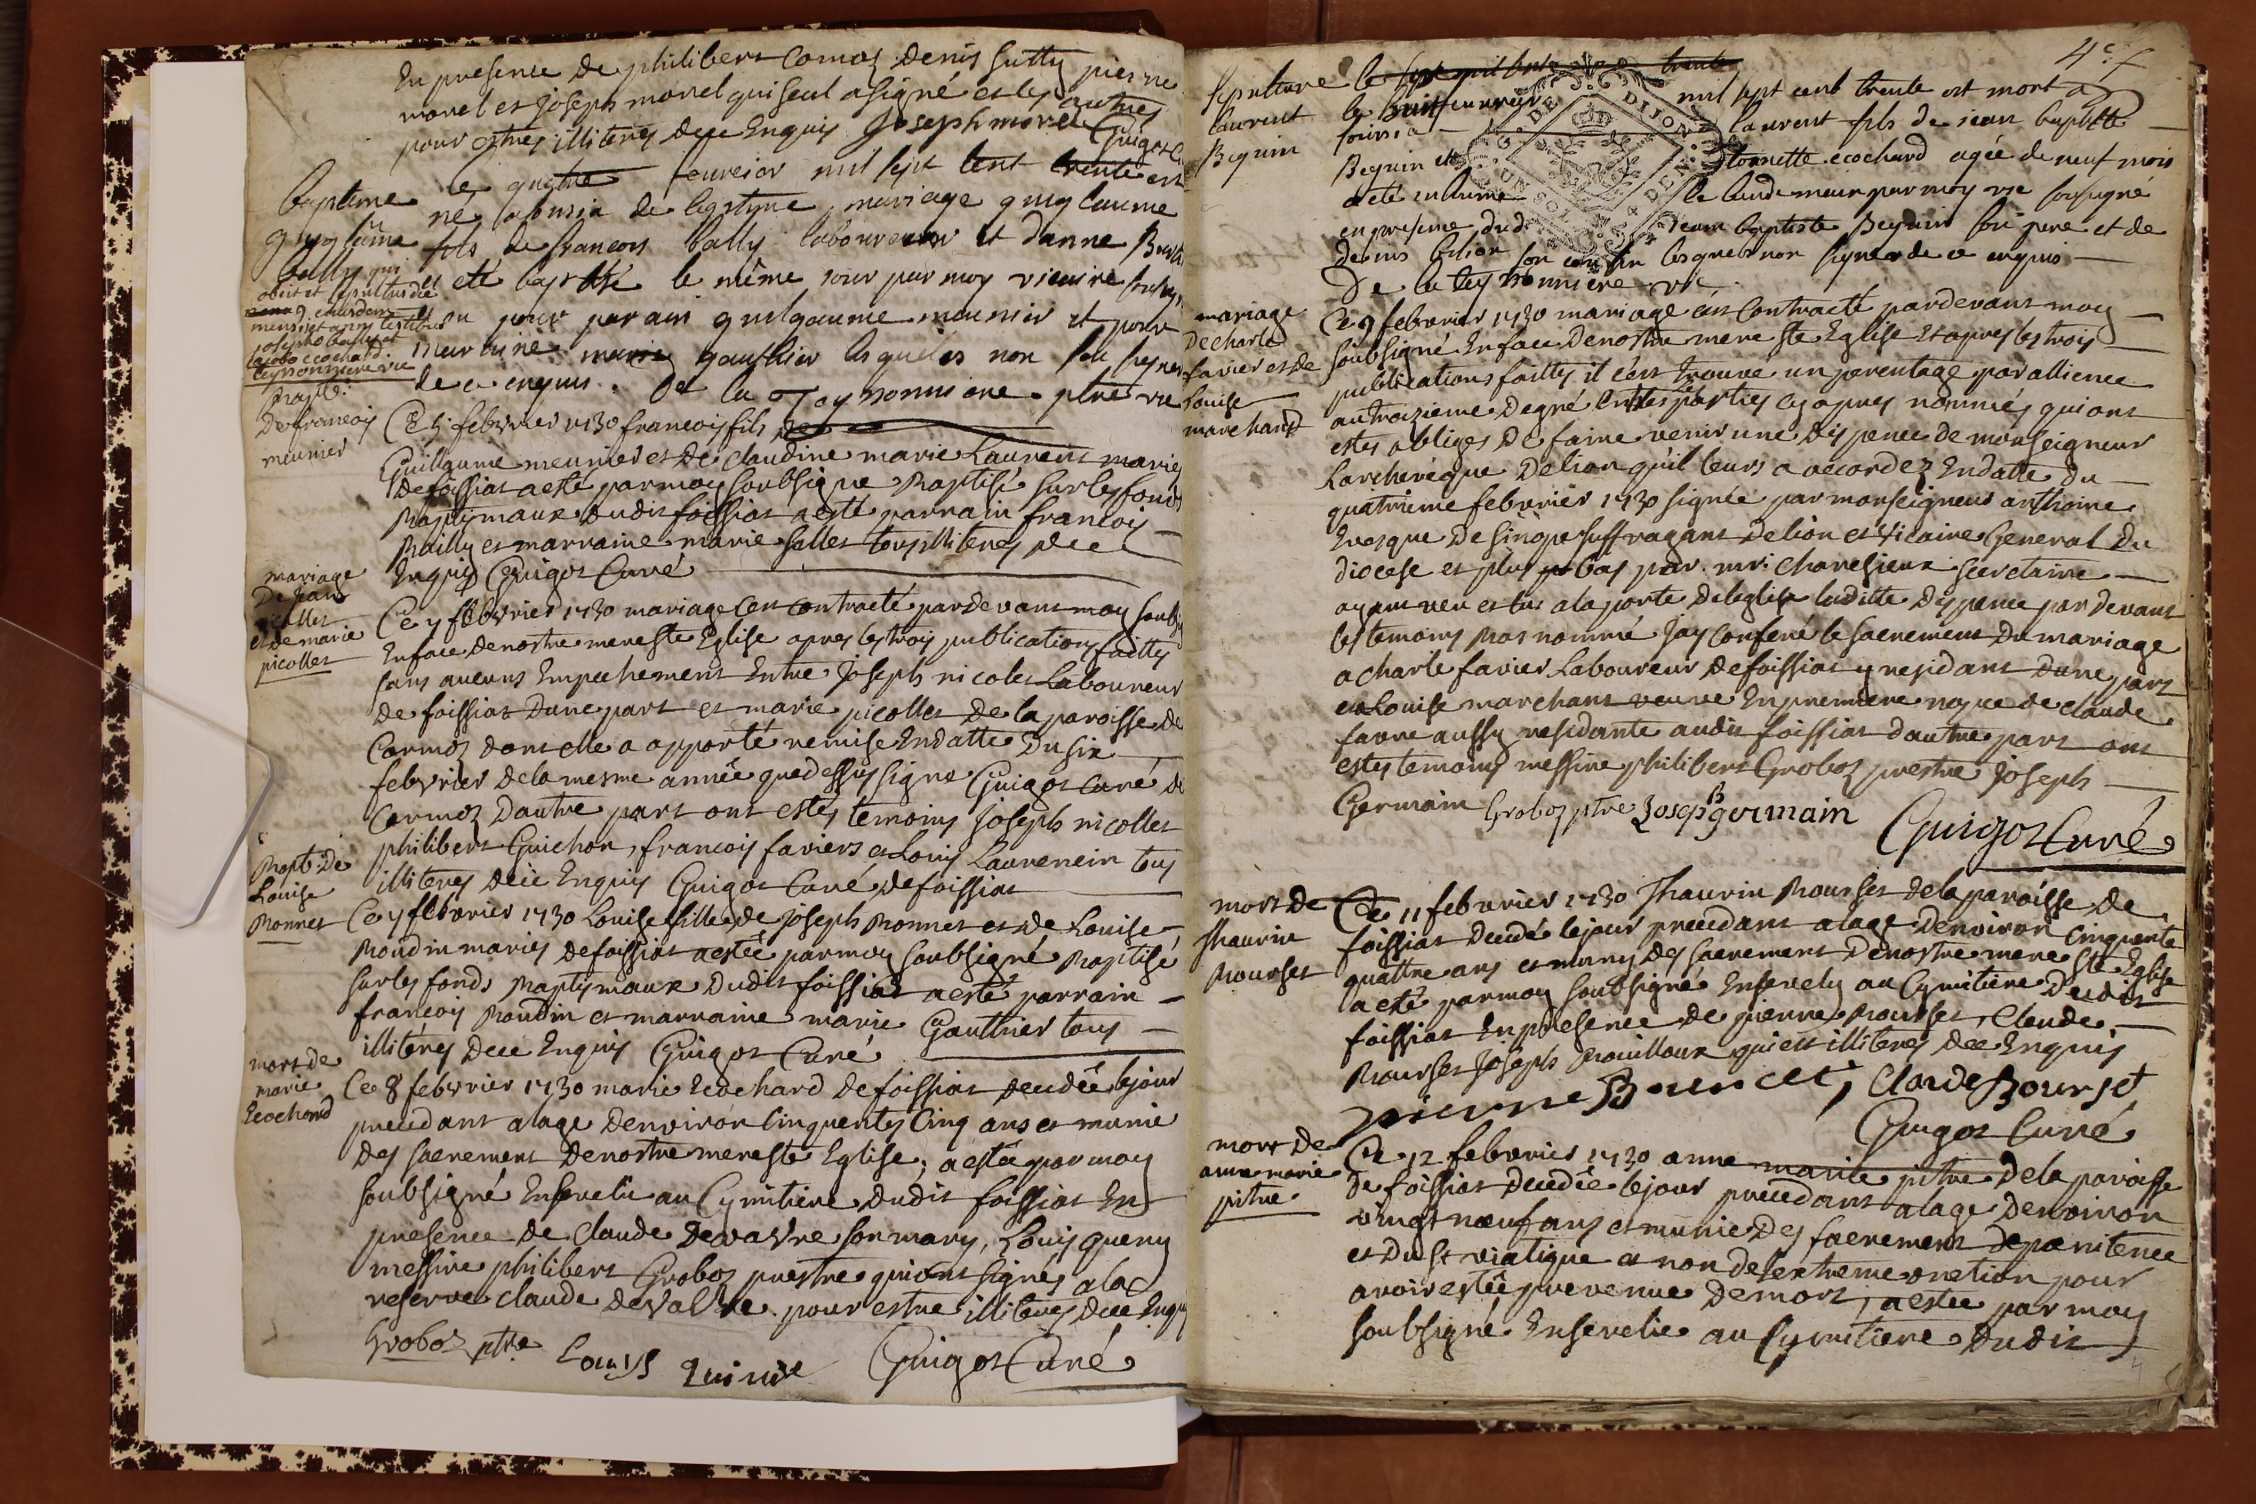 En presence de philibert Comoz denis Guitty pierre
morel et joseph morel qui seul a signé et les autres
pour estres illiteres de ce Enquis Joseph morel Guigot C
bapteme
guyllaume
bailly
le quatre feuvrier mil sept cent trente est
né a foissia de legityme mariage guyllaume
fils de francois bailly laboureur et danne
et eté baptisé le même jour par moy vicaire
eu pour parain guilgaume meunier et pour
maraine marie gauthier lesquels non seu signer
de ce enquis. De la Teyssonniere ptre vic
Bapte
de francois
meunier
Ce 5 febvrier 1730 francois fils de
Guillaume meunier et de Claudine marie Laurent mariés
de foissiat a esté par moy soubsigne Baptisé sur les fonds
Baptismaux dudit foissiat a esté parrain francois
Bailly et marraine marie Sallet tous illiteres de ce
Enquis Guigot Curé
mariage
De
nicollet
et de marie
picollet
Ce 7 febvrier 1730 mariage c'est contracté par devant moy
En face de nostre mere Ste Eglise apres les trois publications faittes
sans aucuns Empechement Entre Joseph nicolet Laboureur
de foissiat d'une part et marie picollet de la paroisse de
Cormoz dont elle a apporté remise En datte du six
febvrier de la mesme année que dessus signé Guigot curé de
Cormoz D'autre part ont estes temoins Joseph nicollet
philibert Guichon, francois faviers et Louis Laurencin tous
illiteres de ce Enquis Guigot Curé de foissiat
Bapt: De
Louise
Bonnet
Ce 7 febvrier 1730 Louise fille de joseph Bonnet et de Louise
Boudin mariés de foissiat a estée par moy soubsigné Baptisé
sur les fonds Baptismaux Dudit foissiat a esté parrain
francois Boudin et marraine marie Gauthier tous
illitéres de ce Enquis Guigot Curé
mort de
marie
Ecochard
Ce 8 febvrier 1730 marie Ecochard de foissiat decedée le jour
precedant a l'age d'environ Cinquantes Cinq ans et munie
Des sacrement de nostre mere Ste Eglise, a estée par moy
soubsigné Ensevelie au Cymitiere dudit foissiat En
presence de Claude Devavre son mary, Louis
messire philibert Groboz prestre qui ont signés a la
reserve Claude devavre pour estre illiteres de ce Enquis
Groboz ptre Louys Guigot Curé
4e f
Sepulture
laurent
Beguin
le huit feuvrier mil sept cent trente est mort a
foissia laurent fils de jean baptitte
Beguin et toinette ecochard agée de neuf mois
a eté inhumé le lendemain par moy vic sousigné
en presence dud jean baptiste Beguin son pere et de
denis son cousin lesquels non signer de ce enquis
De la teyssonniere vic
mariage
De charle
favier et de
Louise
marchand
Ce 9 febvrier 1730 mariage c'est Contracté pardevant moy
soubsigné En face De nostre mere Ste Eglise Et apres les trois
publications faittes il c'est trouvé un parentage par allience
au troizieme degré Entre les parties cy apres nommés qui ont
estes obliges de faire venir une dispence de monseigneur
Larcheveque de lion qu'il leurs a accordez En datte du
quatrieme febvrier 1730 signée par monseigneur anthoine
Evesque de Sinope suffragant de lion et Vicaire General Du
diocese et plus bas par mr. Charesieux Secretaire
ayant veu et lus a la porte de leglise laditte dispence par devant
les temoins Bas nommé Jay Conferé le sacrement Du mariage
a charle favier Laboureur de foissiat y residant d'une part
et Louise marchant veuve En premiere nopce de claude
favre aussy residante audit foissiat d'autre part ont
estes temoins messire philibert Groboz prestre Joseph
Germain Groboz ptre Joseph germain
Guigot Curé
mort De
Thaurin
Bourset
Ce 11 febvrier 1730 Thaurin Bourset de la paroisse De
foissiat decedé le jour precedant a l'age d'environ Cinquante
quattre ans et munis des sacrement de nostre mere Ste Eglise
a esté par moy soubsigné Ensevely au Cymitiere Dudit
foissiat En presence de pierre Bourset, Claude
Bourset Joseph Bouilloux qui est illiteres de ce Enquis
pierre Bourcet, Claude Bourset
Guigot Curé
mort De
anne marie
pitre
Ce 12 febvrier 1730 anne marie pitre De la paroisse
De foissiat decedée le jour precedant a l'age d'environ
vingt neuf ans et munie des sacrement de penitence
et du St viatique et non de l'extreme onction pour
avoir estée prevenue de mort, a estee par moy
soubsigné Ensevelie au Cymitiere Dudit
G. DE DIJON
UN SOL
DEN